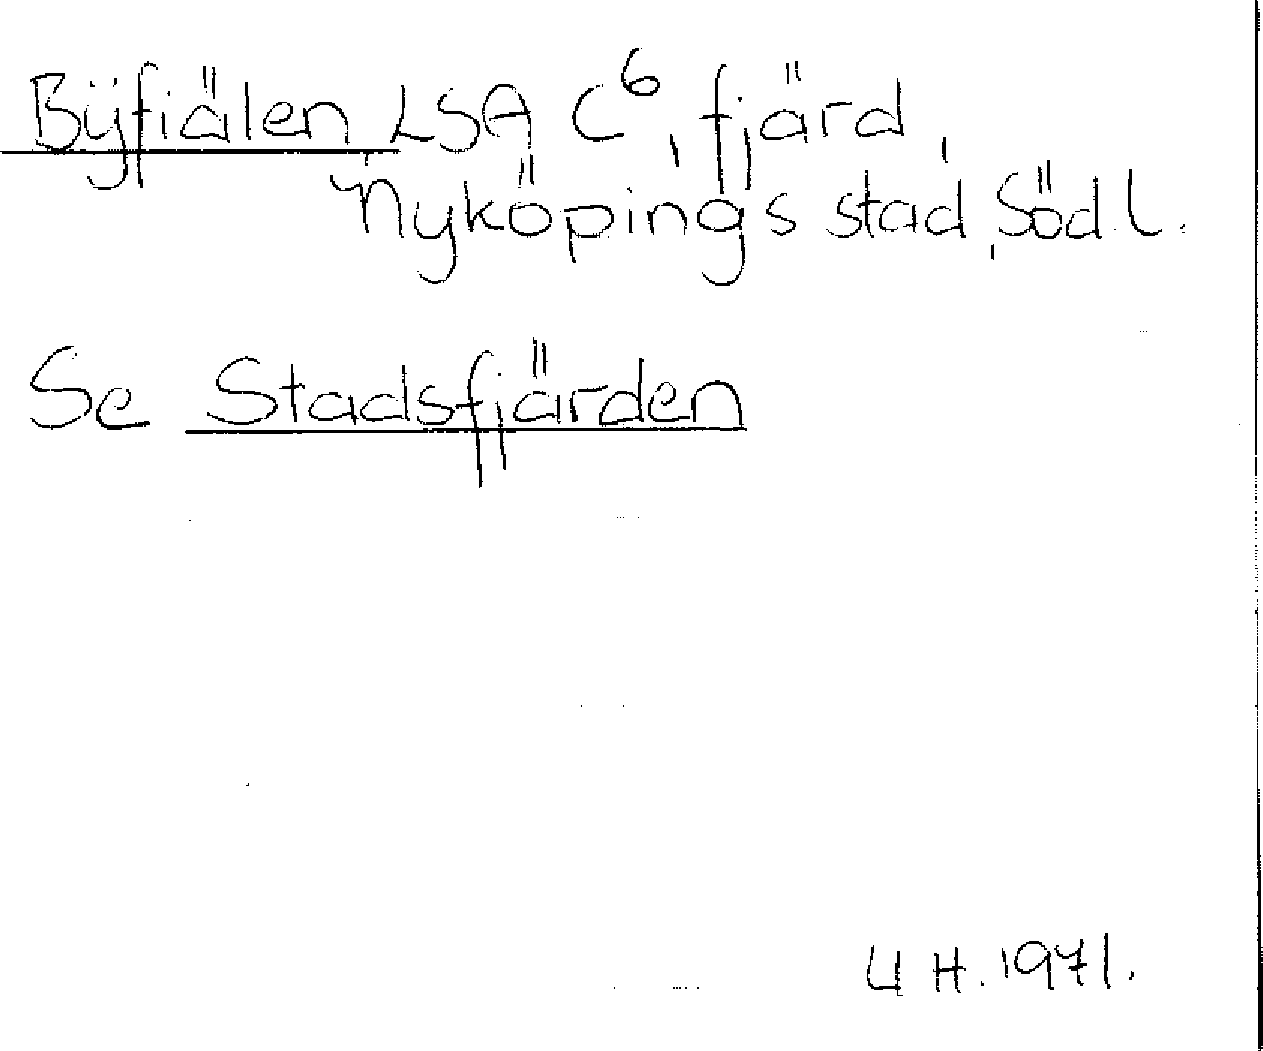 Bÿfiälen LSA C⁶, fjärd,
Nyköpings stad, Söd.l.
Se Stadsfjärden
U H. 1971.